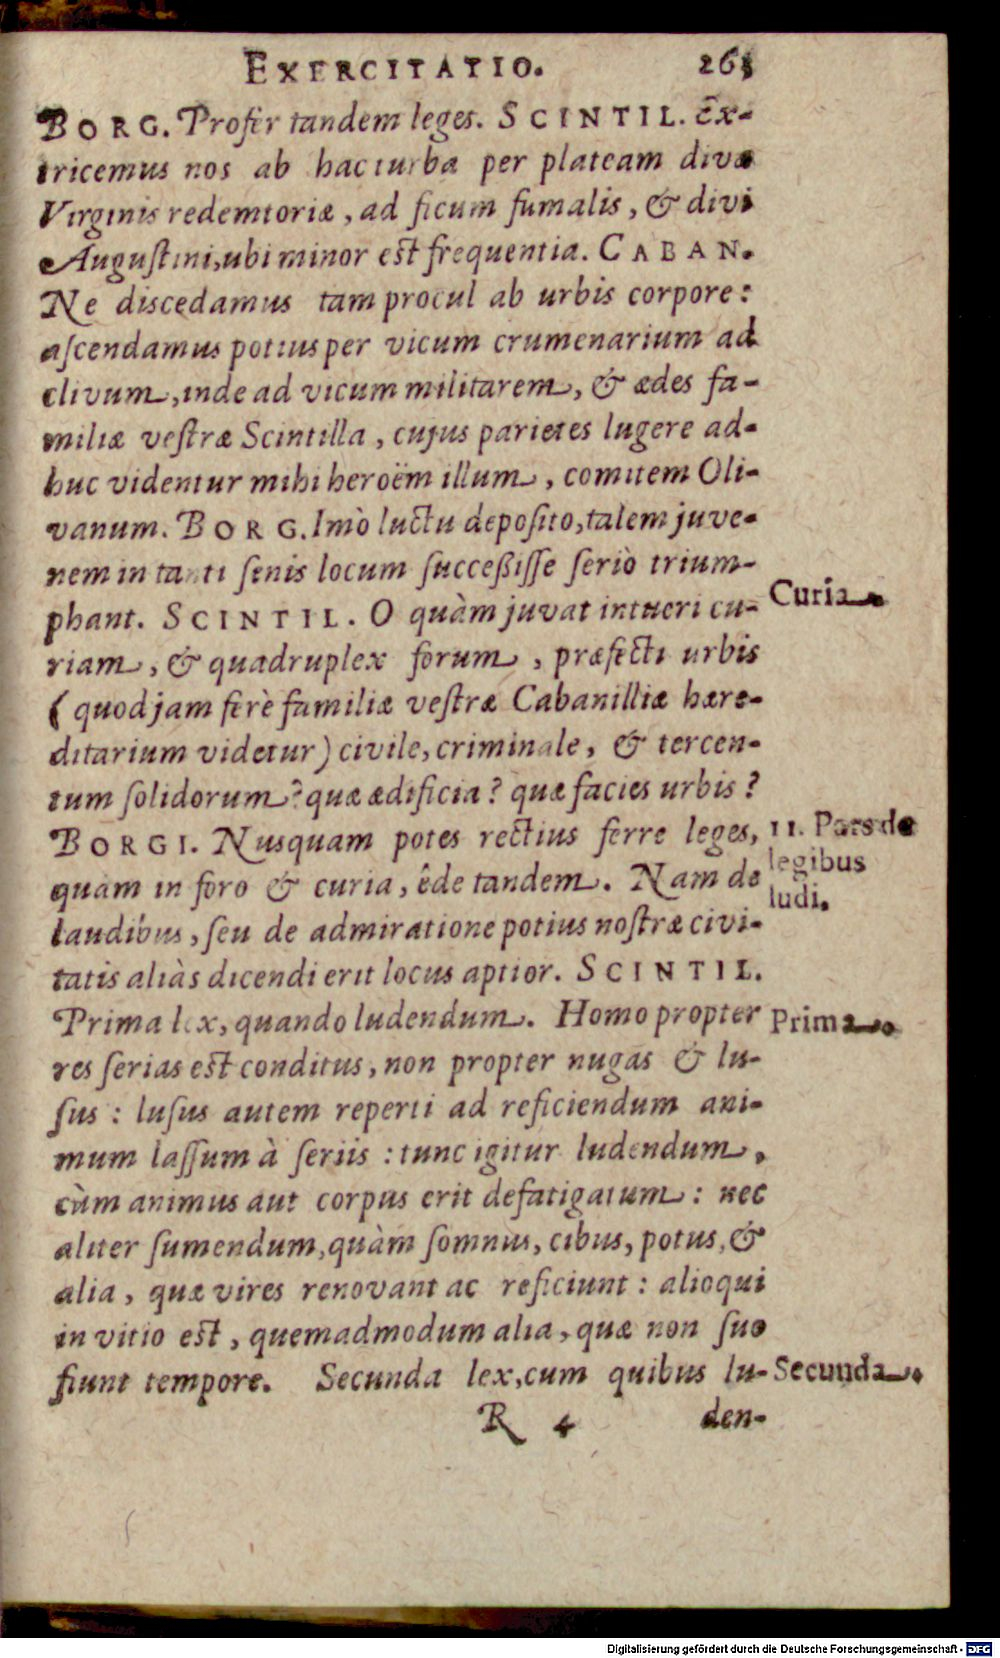 EXERCITATIO. 263
BORG. Profer tandem leges. SCINTIL. Ex-
tricemus nos ab hac turba per plateam divæ
Virginis redemtoriæ, ad ficum fumalis, & divi
Augustini, ubi minor est frequentia. CABAN.
Ne discedamus tam procul ab urbis corpore:
ascendamus potius per vicum crumenarium ad
clivum, inde ad vicum militarem, & ædes fa-
miliæ vestræ Scintilla, cujus parietes lugere ad-
huc videntur mihi heroëm illum, comitem Oli-
vanum. BORG. Imò luctu deposito, talem juve-
nem in tanti senis locum successisse seriò trium-
phant. SCINTIL. O quàm juvat intueri cu-
Curia
riam, & quadruplex forum, præfecti urbis
(quod jam ferè familiæ vestræ Cabanilliæ hære-
ditarium videtur) civile, criminale, & tercen-
tum solidorum? quæ ædificia? quæ facies urbis?
BORGI. Nusquam potes rectius ferre leges,
11. Pars de
legibus
ludi.
quàm in foro & curia, êde tandem. Nam de
laudibus, seu de admiratione potius nostræ civi-
tatis aliàs dicendi erit locus aptior. SCINTIL.
Prima lex, quando ludendum. Homo propter
Prima
res serias est conditus, non propter nugas & lu-
sus: lusus autem reperti ad reficiendum ani-
mum lassum à seriis: tunc igitur ludendum,
cùm animus aut corpus erit defatigatum: nec
aliter sumendum, quàm somnus, cibus, potus, &
alia, quæ vires renovant ac reficiunt: alioqui
in vitio est, quemadmodum alia, quæ non suo
fiunt tempore. Secunda lex, cum quibus lu-
Secunda
R 4 den-
Digitalisierung gefördert durch die Deutsche Forschungsgemeinschaft - DFG